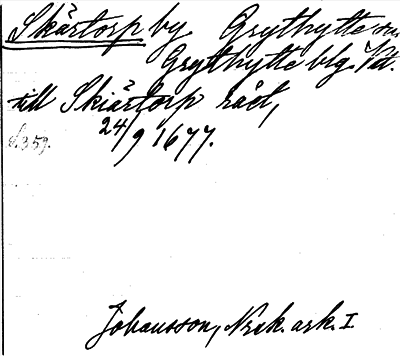 Skärtorp by Grythytte sn.
Grythytte blg Vstm.
till Skiärtorp rået,
24/9 1677.
s. 359.
Johansson, Nzsk. ark. I